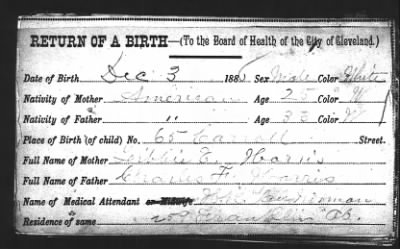 RETURN OF A BIRTH—(To the Board of Health of the City of Cleveland.)
Date of Birth Dec 3 188 Sex Male Color White
Nativity of Mother American Age 25 Color W
Nativity of Father " Age 33 Color W
Place of Birth (of child) No. 65 Carroll Street.
Full Name of Mother E. Harris
Full Name of Father Charles F. Harris
Name of Medical Attendant or Midwife
Residence of same 209 Franklin